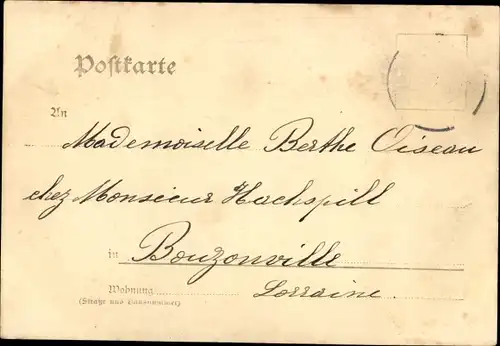 Postkarte
An
Mademoiselle Berthe Oiseau
chez Monsieur Hachspill
in Bouzonville
Wohnung Lorraine.
(Straße und Hausnummer)